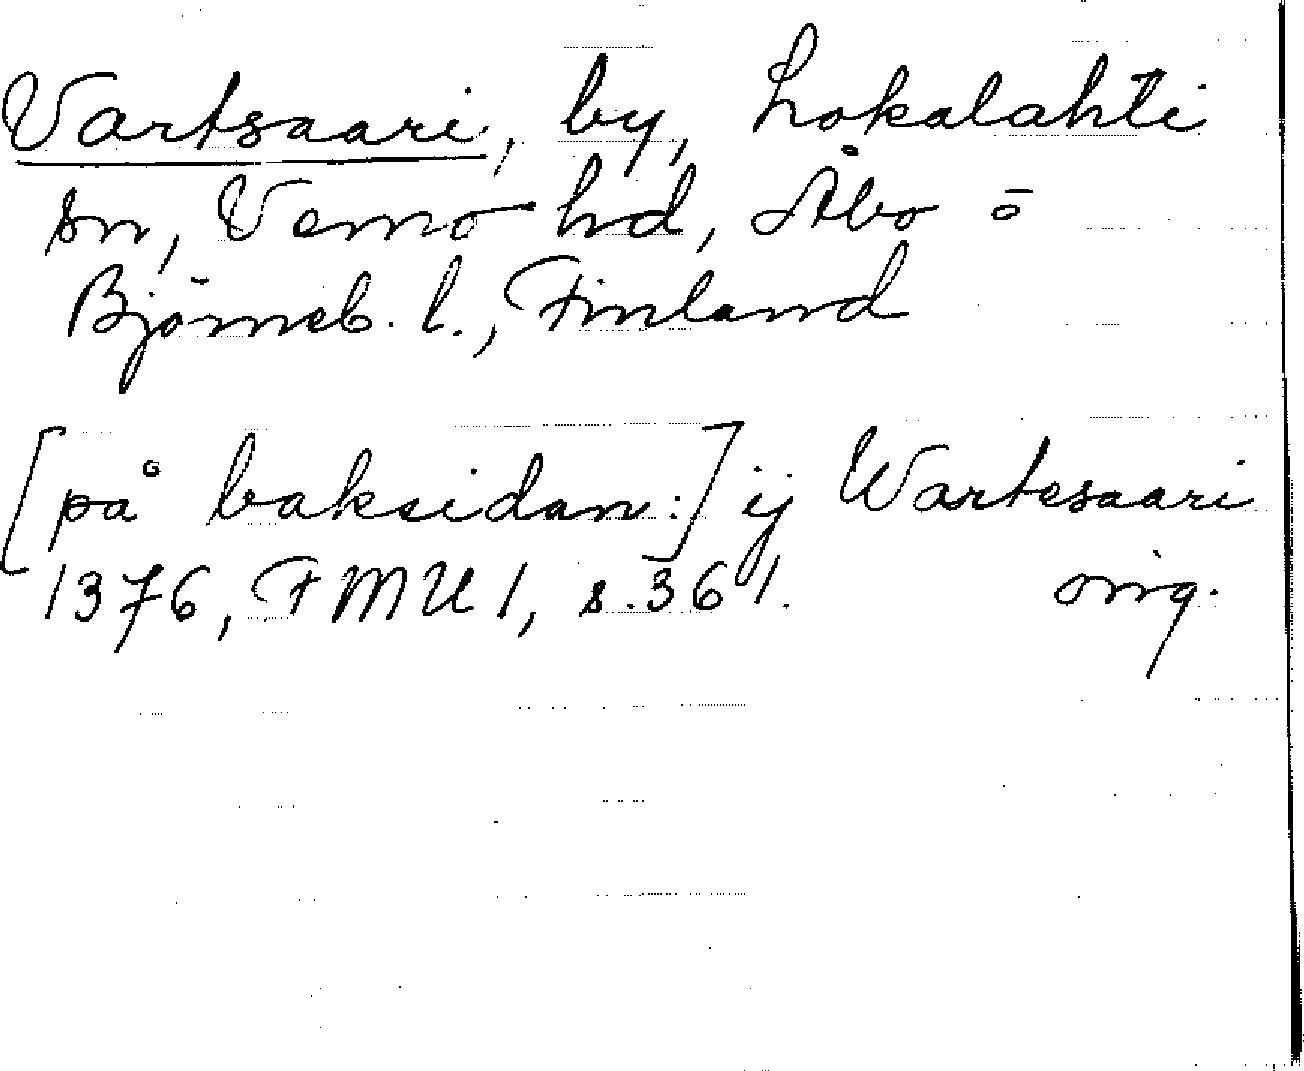 Vartsaari, by, Lokalahti
sn, Vemo hd, Åbo o
Björneb. l., Finland
[på baksidan:] ij Wartesaari
1376, FMU 1, s. 361. orig.